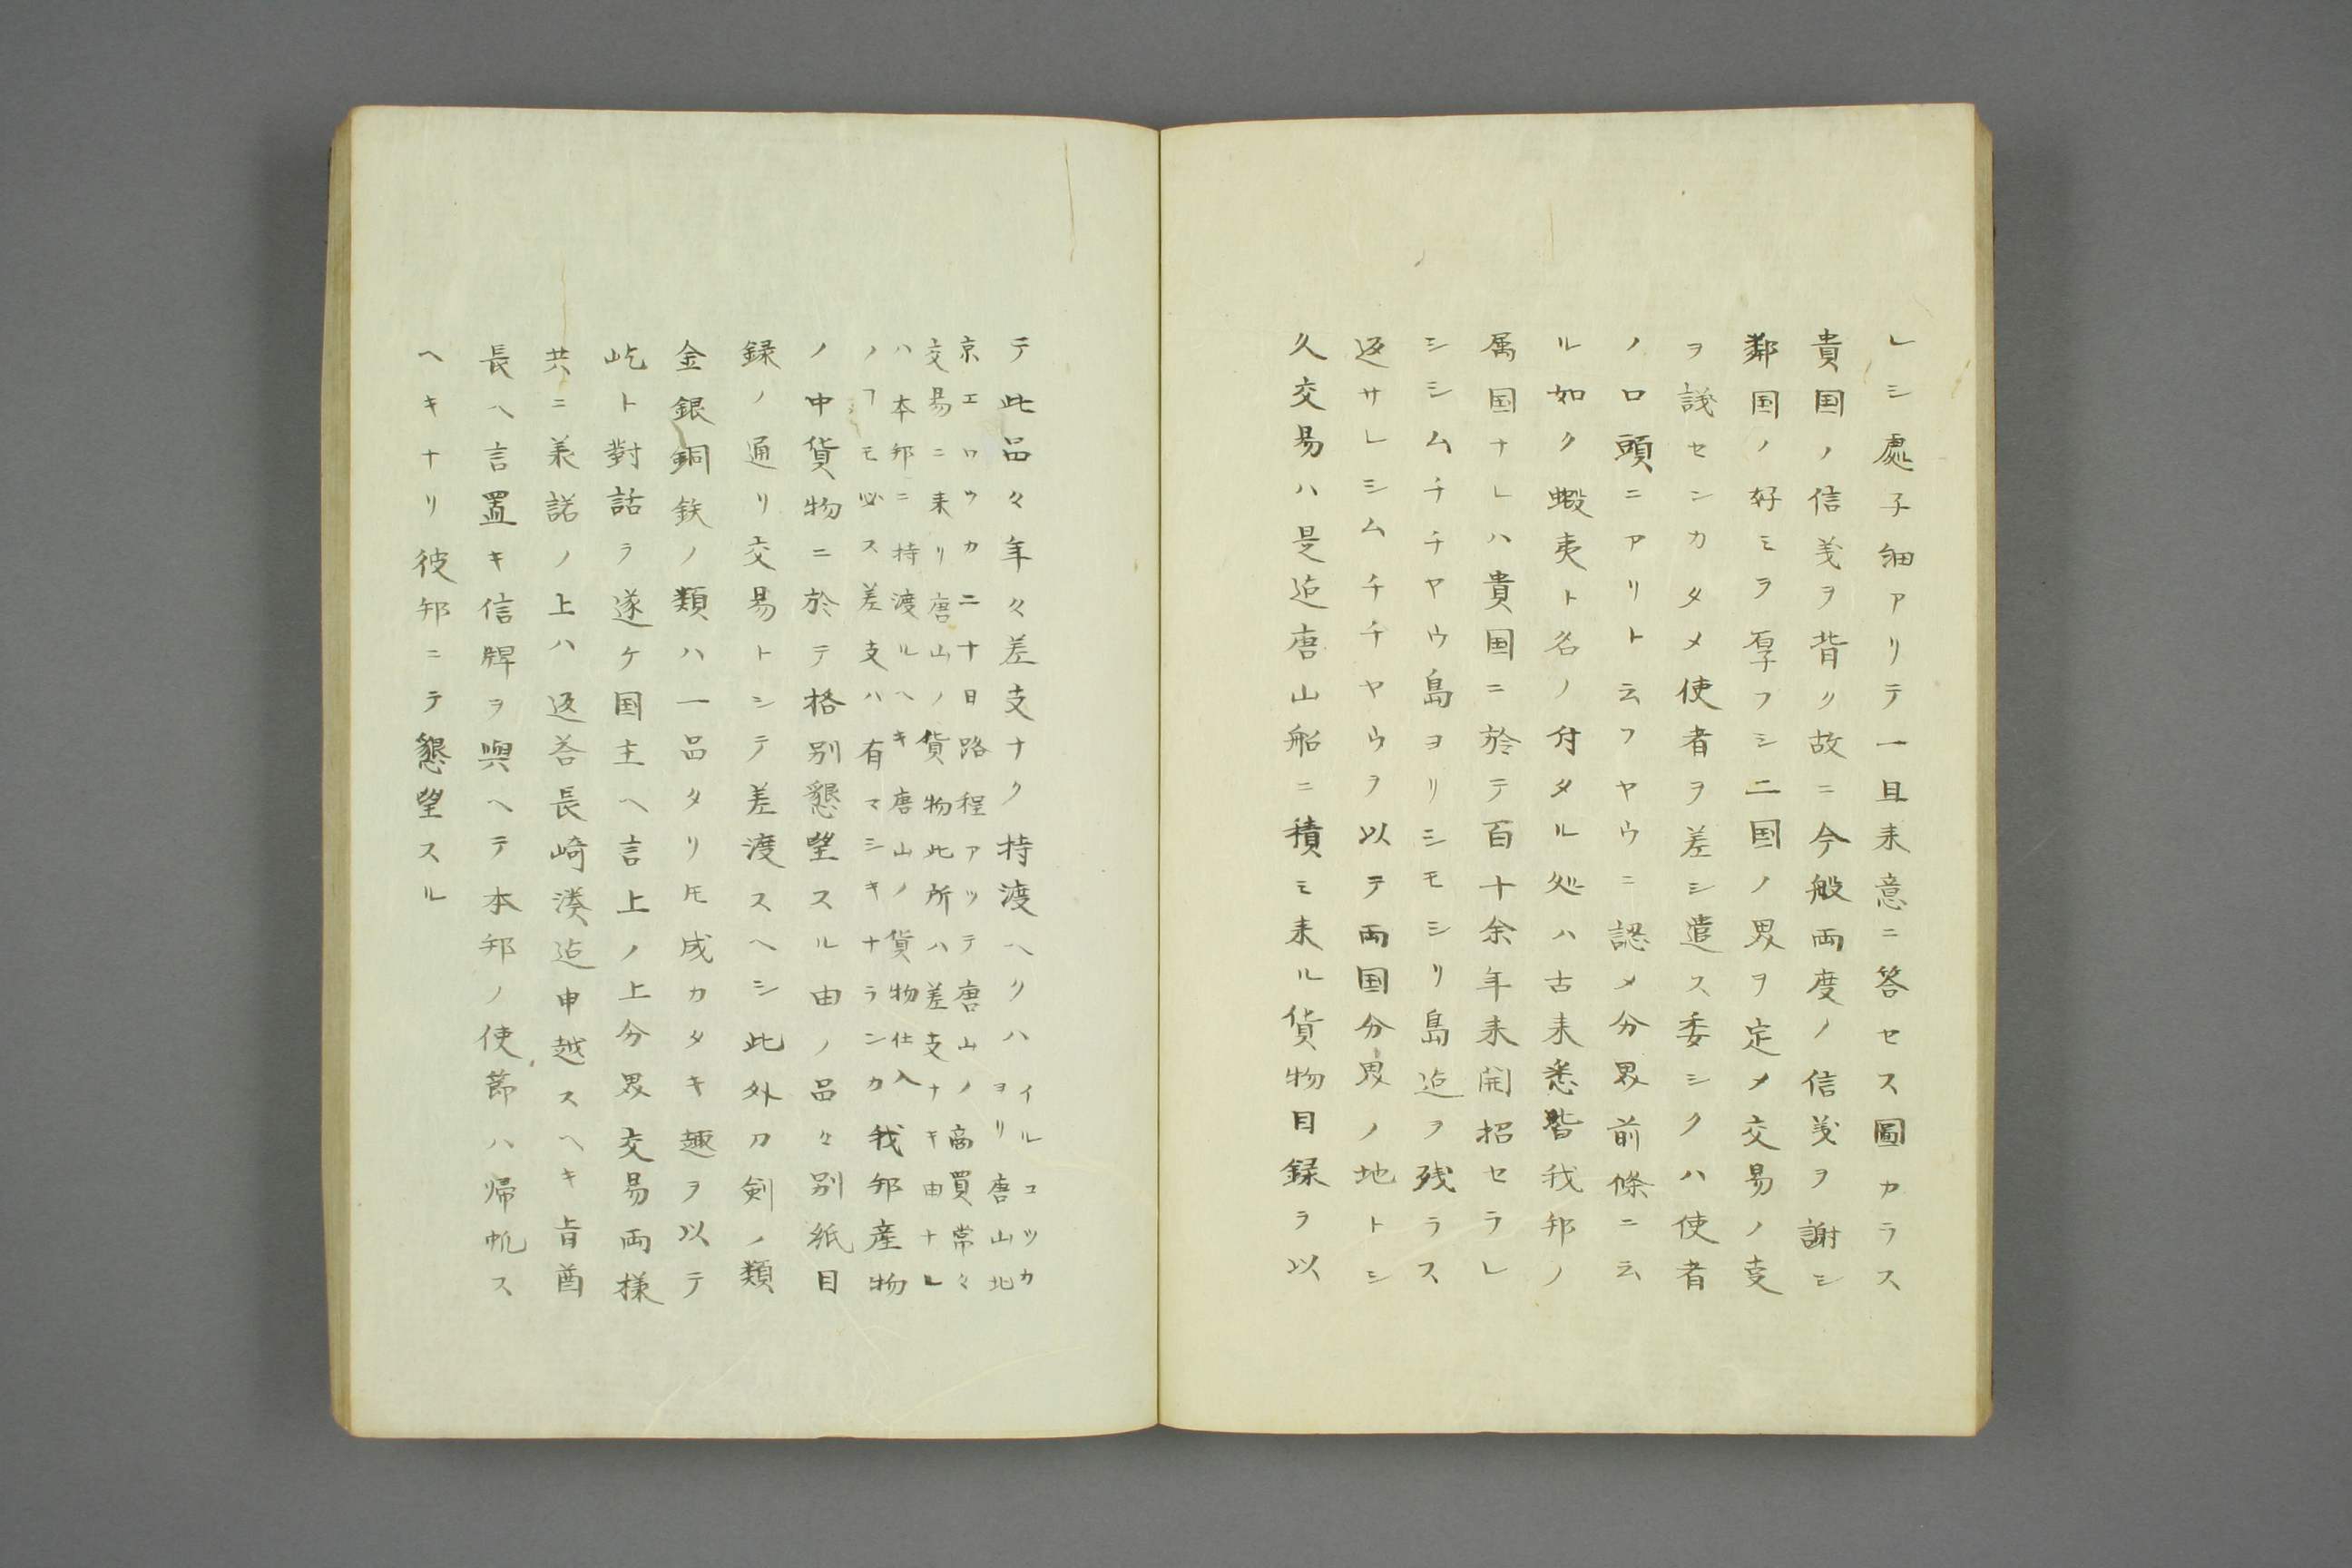 レシ處子細アリテ一旦来意ニ答セス圖カラス
貴国ノ信義ヲ背ク故ニ今般両度ノ信義ヲ謝シ
鄰国ノ好ミヲ厚フシ二国ノ界ヲ定メ交易ノ支
ヲ議センカタメ使者ヲ差シ遣ス委シクハ使者
ノ口頭ニアリト云フヤウニ認メ分界前條ニ云
ル如ク蝦夷ト名ノ付タル処ハ古来悉皆我邦ノ
属国ナレハ貴国ニ於テ百十余年来開招セラレ
シシムチチヤウ島ヨリシモシリ島迠ヲ残ラス
返サレシムチチヤウヲ以テ両国分界ノ地トシ
久交易ハ是迠唐山船ニ積ミ来ル貨物目録ヲ以
テ此品々年々差支ナク持渡ヘクハイルコツカ
ヨリ唐山北
京エロウカ二十日路程アツテ唐山ノ商買常々
交易ニ来リ唐山ノ貨物此所ハ差支ナキ由ナレ
ハ本邦ニ持渡ルヘキ唐山ノ貨物仕入
ノヿモ必ス差支ハ有マシキナランカ我邦産物
ノ中貨物ニ於テ格別懇望スル由ノ品々別紙目
録ノ通リ交易トシテ差渡スヘシ此外刀剣ノ類
金銀銅鉄ノ類ハ一品タリ𪜈成カタキ趣ヲ以テ
屹ト對話ヲ遂ケ国主ヘ言上ノ上分界交易両様
共ニ義諾ノ上ハ返荅長崎湊迠申越スヘキ旨酋
長ヘ言置キ信牌ヲ與ヘテ本邦ノ使節ハ帰帆ス
ヘキナリ彼邦ニテ懇望スル